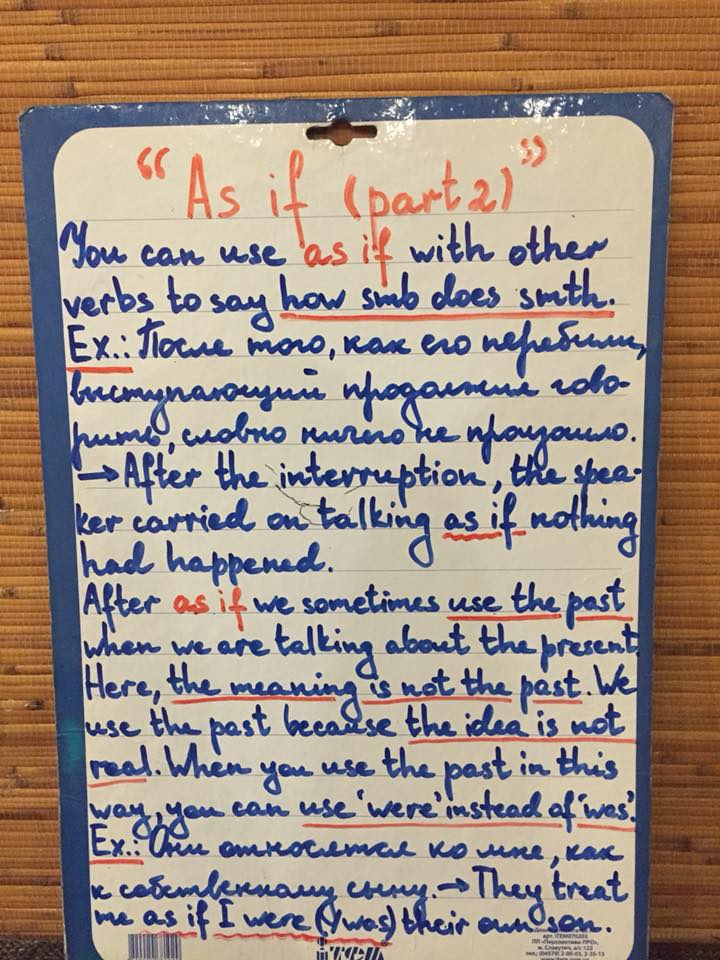 “As if (part 2)”
You can use as if with other
verbs to say how smb does smth.
Ex.: После того, как его перебили,
выступающий продолжил гово-
рить, словно ничего не произошло.
→ After the interruption, the spea-
ker carried on talking as if nothing
had happened.
After as if we sometimes use the past
when we are talking about the present.
Here, the meaning is not the past. We
use the past because the idea is not
real. When you use the past in this
way, you can use 'were' instead of 'was'.
Ex.: Они относятся ко мне, как
к собственному сыну. → They treat
me as if I were (/was) their own son.
арт. ITEM070203
ПП «Перспектива-ПРО»,
м. Славутич, а/с 122
тел.: (04579) 2-00-03, 2-35-13